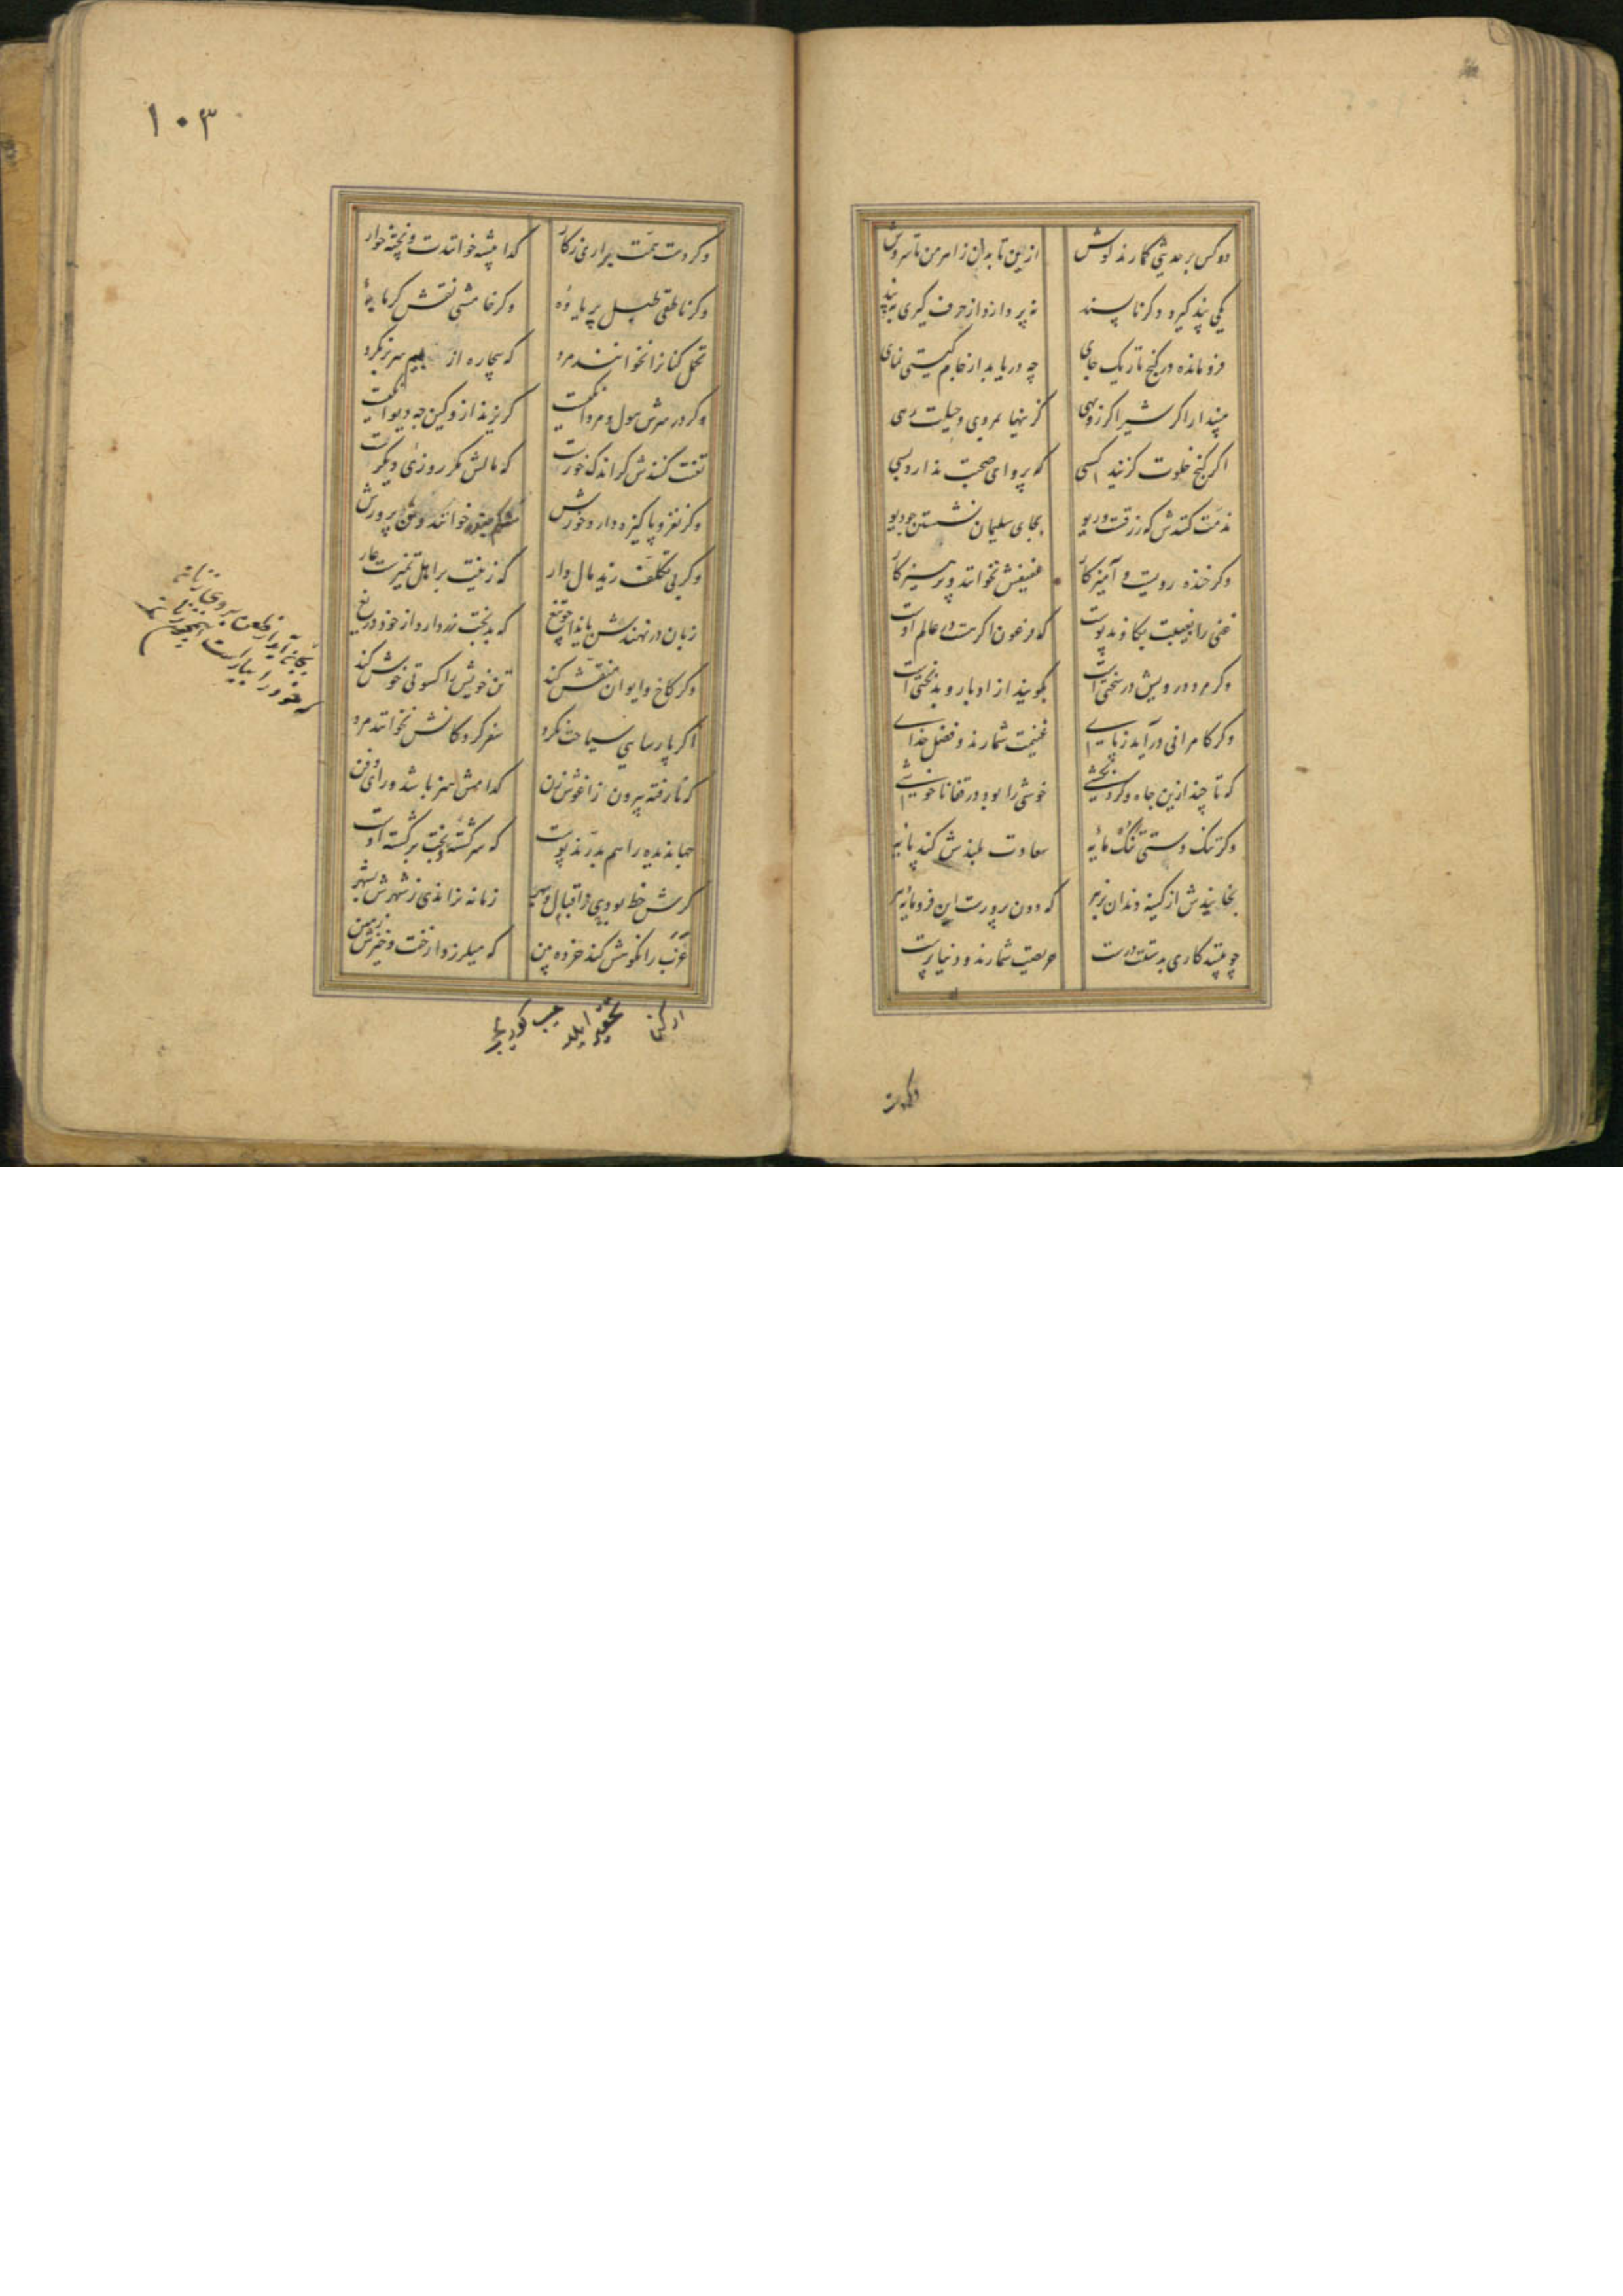 دو کس بر حدیثی گمارند گوش
ازین تا بدان ز اهرمن تا سروش
یکی پند گیرد دگر ناپسند
نپردازد از حرف گیری به پند
فرو مانده در کنج تاریک جای
چه دریابد از جام گیتی نمای
مپندار اگر شیر اگر روبهی
کزینها بمردی و حیلت رهی
اگر کنج خلوت گزیند کسی
که پروای صحبت ندارد بسی
مذمت کنندش که زرقست و ریو
بجای سلیمان نشستن چو دیو
وگر خنده رویست و آمیزگار
عفیفش نخوانند و پرهیزگار
غنی را بغیبت بکاوند پوست
که فرعون اگر هست در عالم اوست
وگر مرد درویش در سختی است
بگویند از ادبار و بدبختی است
وگر کامرانی درآید ز پای
غنیمت شمارند و فضل خدای
که تا چند ازین جاه و گردنکشی
خوشی را بود در قفا ناخوشی
وگر تنگ دستی تنک مایه
سعادت بلندش کند پایه
بخایندش از کینه دندان بزهر
که دون پرورست این فرومایه دهر
چو بینند کاری بدستت درست
حریصت شمارند و دنیا پرست
وگر دست همت بداری ز کار
گدا پیشه خوانندت و پخته خوار
وگر ناطقی طبل پر یاوه
وگر خامشی نقش گرمابه
تحمل کنانرا نخوانند مرد
که بیچاره از بیم سر بر نکرد
وگر در سرش هول و مردانگیست
گریزند ازو کین چه دیوانگیست
تعنت کنندش گر اندک خورست
که مالش مگر روزی دیگرست
وگر نغز و پاکیزه دارد خورش
شکم بنده خوانند و تن پرورش
وگر بی تکلف زید مال دار
که زینت بر اهل تمیزست عار
زبان در نهندش بایذا چو تیغ
که بدبخت زر دارد از خود دریغ
وگر کاخ و ایوان منقش کند
تن خویش را کسوتی خوش کند
بجان آید از طعن بر وی زنان
که خود را بیاراست همچون زنان
اگر پارسایی سیاحت نکرد
سفر کردگانش نخوانند مرد
که نارفته بیرون ز آغوش زن
کدامش هنر باشد و رای و فن
جهاندیده را هم بدرند پوست
که سرگشته بخت برگشته اوست
گرش حظ بودی ز اقبال و بهر
زمانه نراندی ز شهرش بشهر
عزب را نکوهش کند خرده بین
که میلرزد از خفت و خیزش زمین
وگر دست
١٠٣